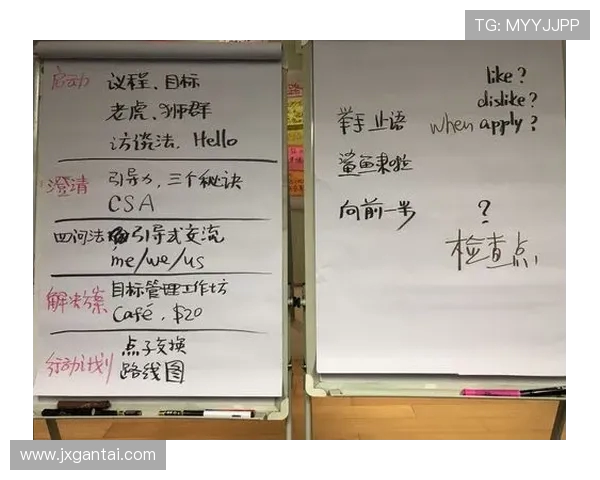 TG: MYYJJPP
启动 议程、目标
老虎、狮群
访谈法、Hello
澄清 引导力,三个秘诀
CSA
四问法 引导式交流
me/we/us
解决方案 目标管理工作坊
Café, $20
点子交换
行动计划 路线图
like?
dislike?
举手止语 when apply?
鲨鱼来啦
向前一步 ?
检查点
www.jxgantai.com